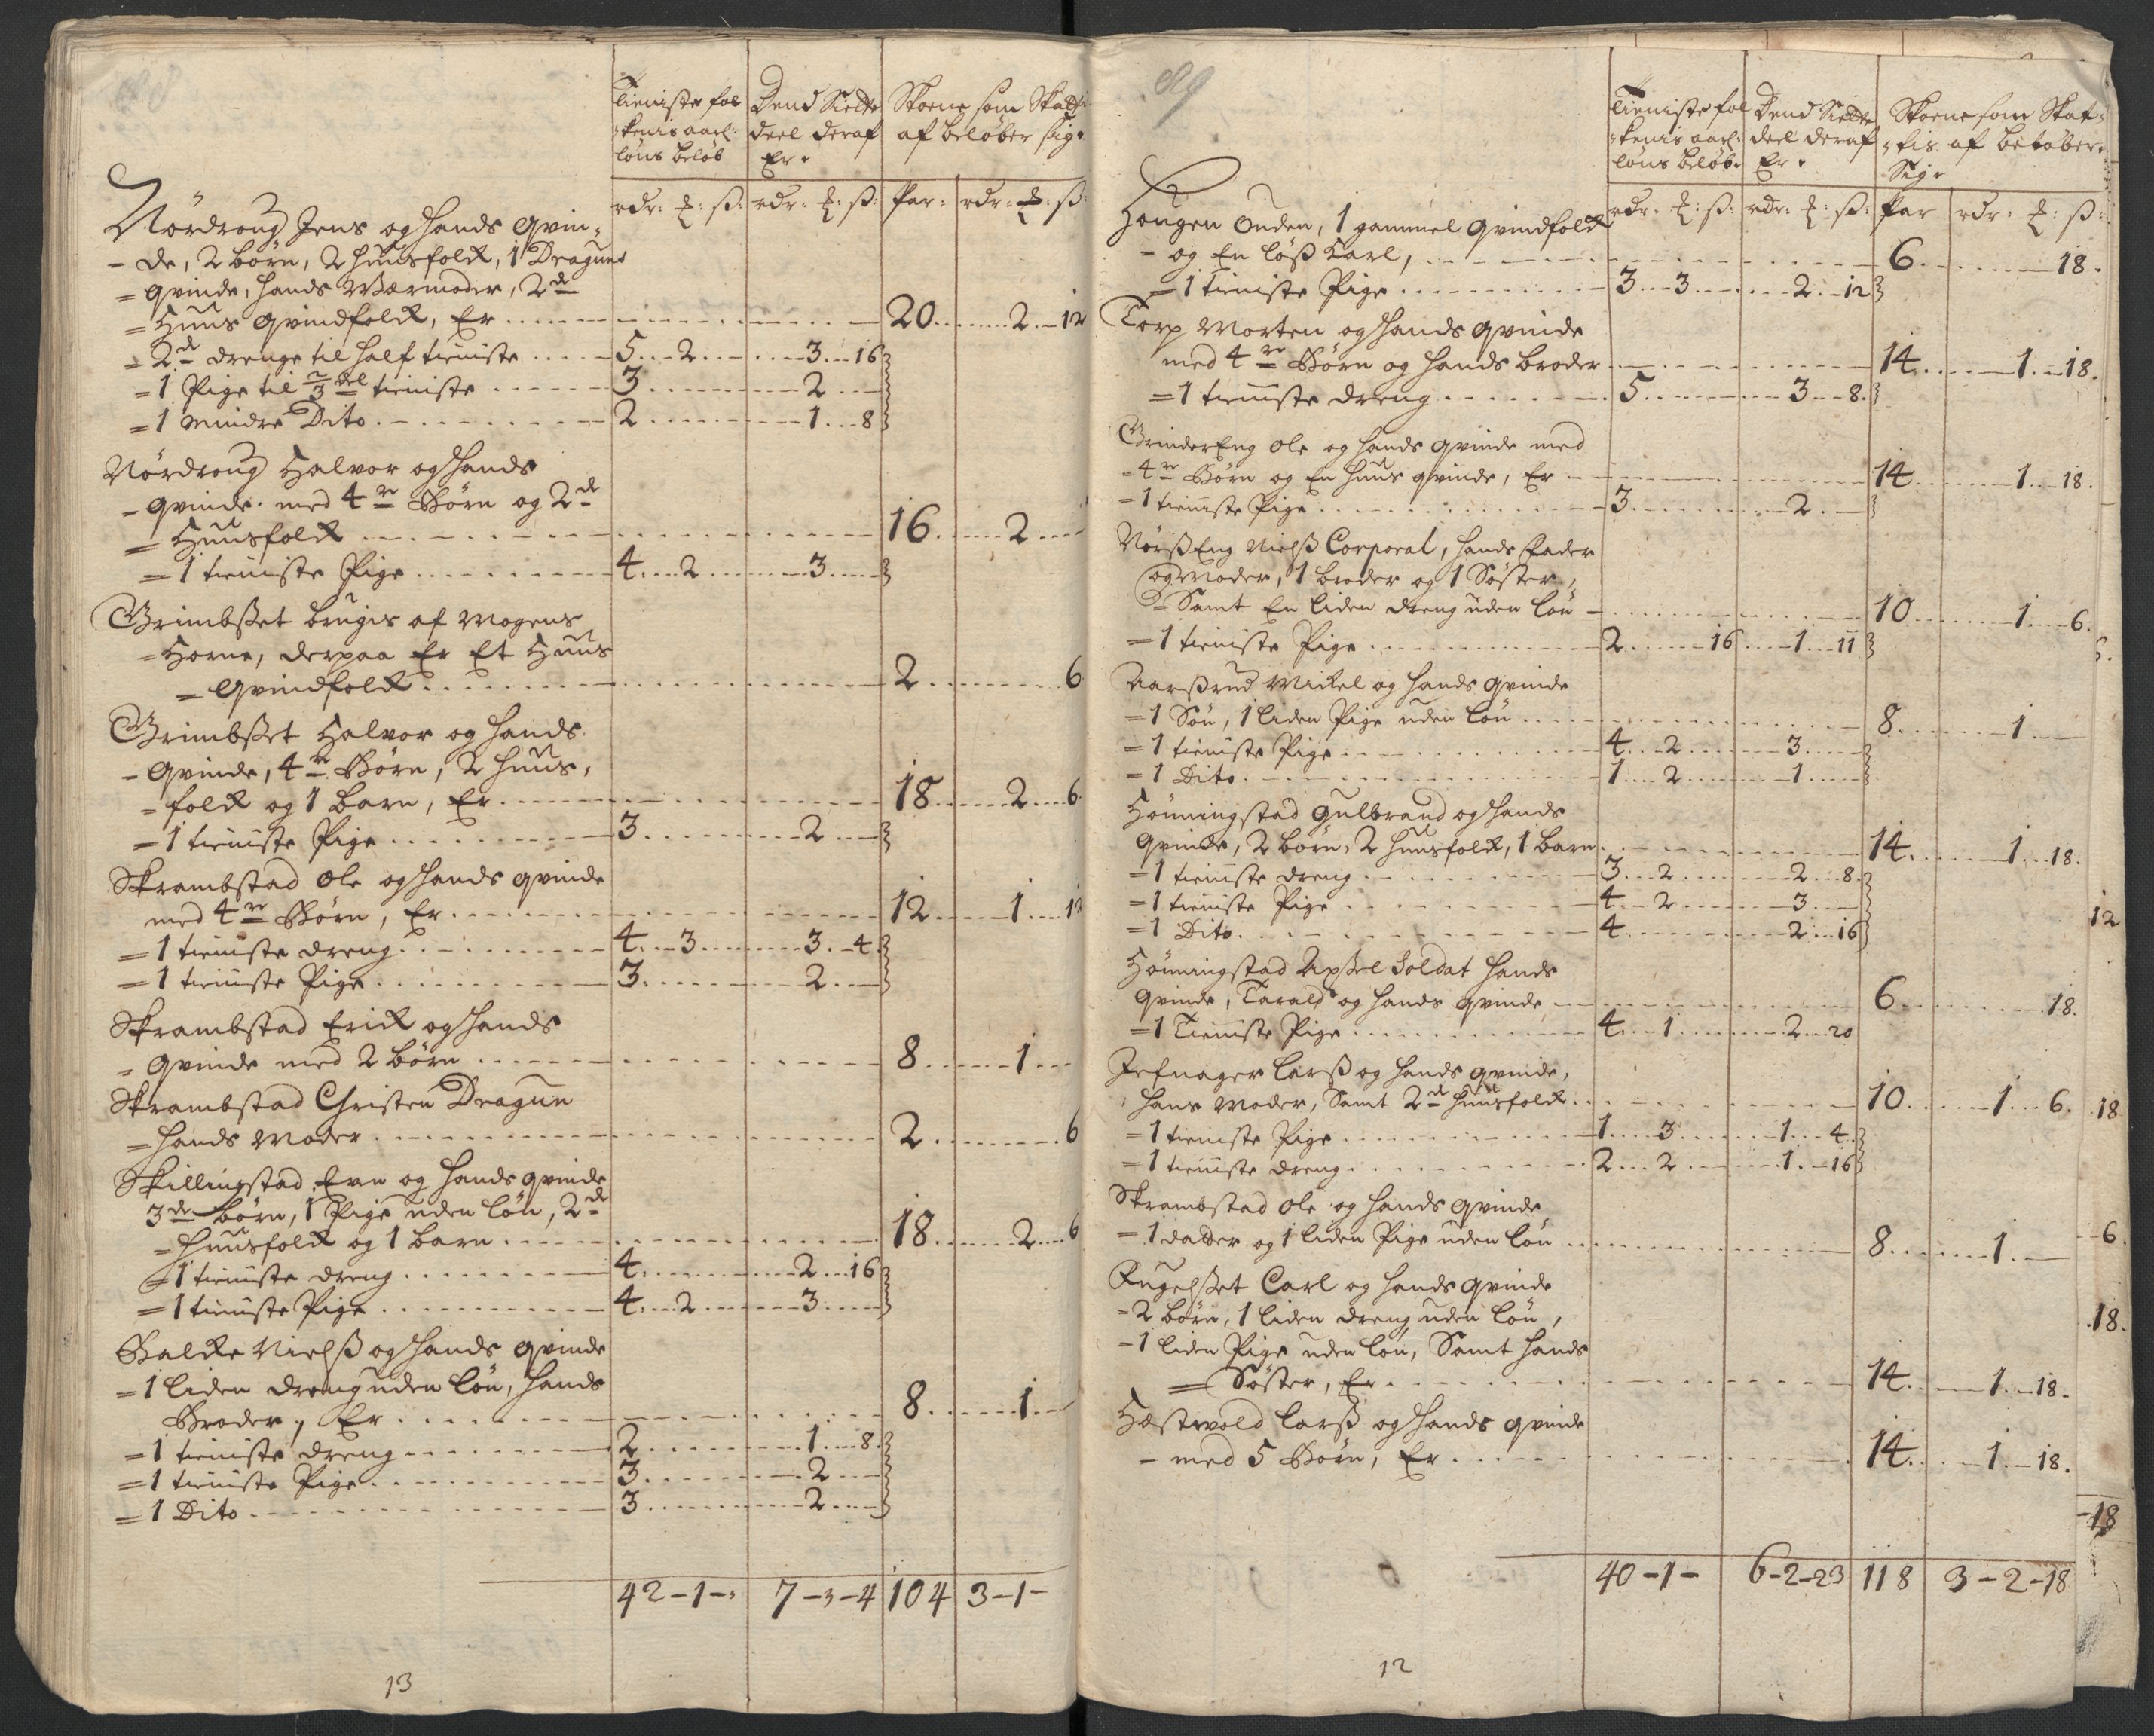 Tieniste fol
-kenis aarl:
löns beløb
Dend Siette
deel deraf
Er
Skoene som Skatt
af beløber sig
rdr: : ß: rdr: : ß: Par: rdr: : ß
Nordroug Jens og Hands Qvin-
- de, 2 børn, 2 huusfolk, 1 Draguns
= qvinde, hands Wærmoder, 2de
= Huus qvindfolk, Er 20 2 12
= 2de drenge til half tieniste 5 2 3 16
= 1 Pige til 2/3 del tieniste 3 2
= 1 mindre Dito 2 1 8
Nordroug Halvor og Hands
- qvinde med 4re Børn og 2de
= Huusfolk 16 2
= 1 tieniste Pige 4 2 3
Grimbsset brugis af Mogens
= Horne, derpaa Er Et Huus
= Qvindfolk 2 6
Grimbsset Halvor og Hands
- Qvinde, 4re Børn, 2 huus,
= folk og 1 barn, Er 18 2 6
= 1 tieniste Pige 3 2
Skrambstad Ole og Hands qvinde
med 4re Børn, Er 12 1 12
= 1 tieniste dreng 4 3 3 4
= 1 tieniste Pige 3 2
Skrambstad Erick og Hands
= Qvinde med 2 børn 8 1
Skrambstad Christen Dragun
= hands Moder 2 6
Skillingstad Even og Hands qvinde
3de børn, 1 Pige uden løn, 2de
= huusfolk og 1 barn 18 2 6
= 1 tieniste dreng 4 2 16
= 1 tieniste Pige 4 2 3
Balke Nielß og Hands qvinde
= 1 liden dreng uden løn, hands
Broder, Er 8 1
= 1 tieniste dreng 2 1 8
= 1 tieniste Pige 3 2
= 1 Dito 3 2
42-1- 7-3-4 104 3-1-
13
89
Tieniste fol
-kenis aarl:
löns beløb
Dend Siette
deel deraf
Er
Skoene som Skat-
-tis af beløber
Sig
rdr: : ß: rdr: : ß: Par rdr: : ß:
Hougen Ouden, 1 gammel qvindfolk
- og En löß Karl, 6 18
= 1 tieniste Pige 3 3 2 12
Torp Morten og Hands qvinde
med 4re Børn og hands broder 14 1 18
= 1 tieniste dreng 5 3 8
GrinderEng Ole og hands qvinde med
- 4re Børn og En huus qvinde, Er 14 1 18
= 1 tieniste Pige 3 2
NorßEng Nielß Corporal, hands Fader
og Moder, 1 broder og 1 Söster,
= Samt En liden dreng uden løn 10 1 6
= 1 tieniste Pige 2 16 1 11
Aarßrud Mickel og hands qvinde
= 1 Søn, 1 liden Pige uden løn 8 1
= 1 tieniste Pige 4 2 3
= 1 Dito 1 2 1
Hönningstad Gulbrand og Hands
Qvinde, 2 børn, 2 huusfolk, 1 barn 14 1 18
= 1 tieniste dreng 3 2 2 8
= 1 tieniste Pige 4 2 3
= 1 Dito 4 2 16
Hönningstad Apsel Soldat hands
Qvinde, Tarald og hands qvinde 6 18
= 1 Tieniste Pige 4 1 2 20
Jefnager Larß og hands qvinde,
hans Moder, Samt 2de huusfolk 10 1 6
= 1 tieniste Pige 1 3 1 4
= 1 tieniste dreng 2 2 1 16
Skrambstad Ole og hands qvinde
= 1 datter og 1 liden Pige uden løn 8 1
Fugelsset Carl og hands qvinde
= 2 børn, 1 liden dreng uden løn,
= 1 liden Pige uden løn, Samt hands
= Söster, Er 14 1 18
Hæstvold Larß og Hands qvinde
- med 5 Børn, Er 14 1 18
40-1- 6-2-23 118 3-2-18
12
12
18
6
18
18